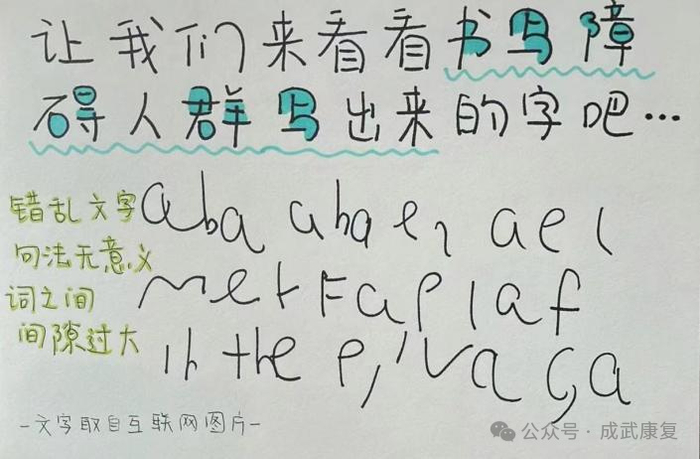 让我们来看看书写障
碍人群写出来的字吧…
错乱文字
句法无意义
词之间
间隙过大
aba abaen ael
met Fap laf
ih the
-文字取自互联网图片-
公众号·成武康复